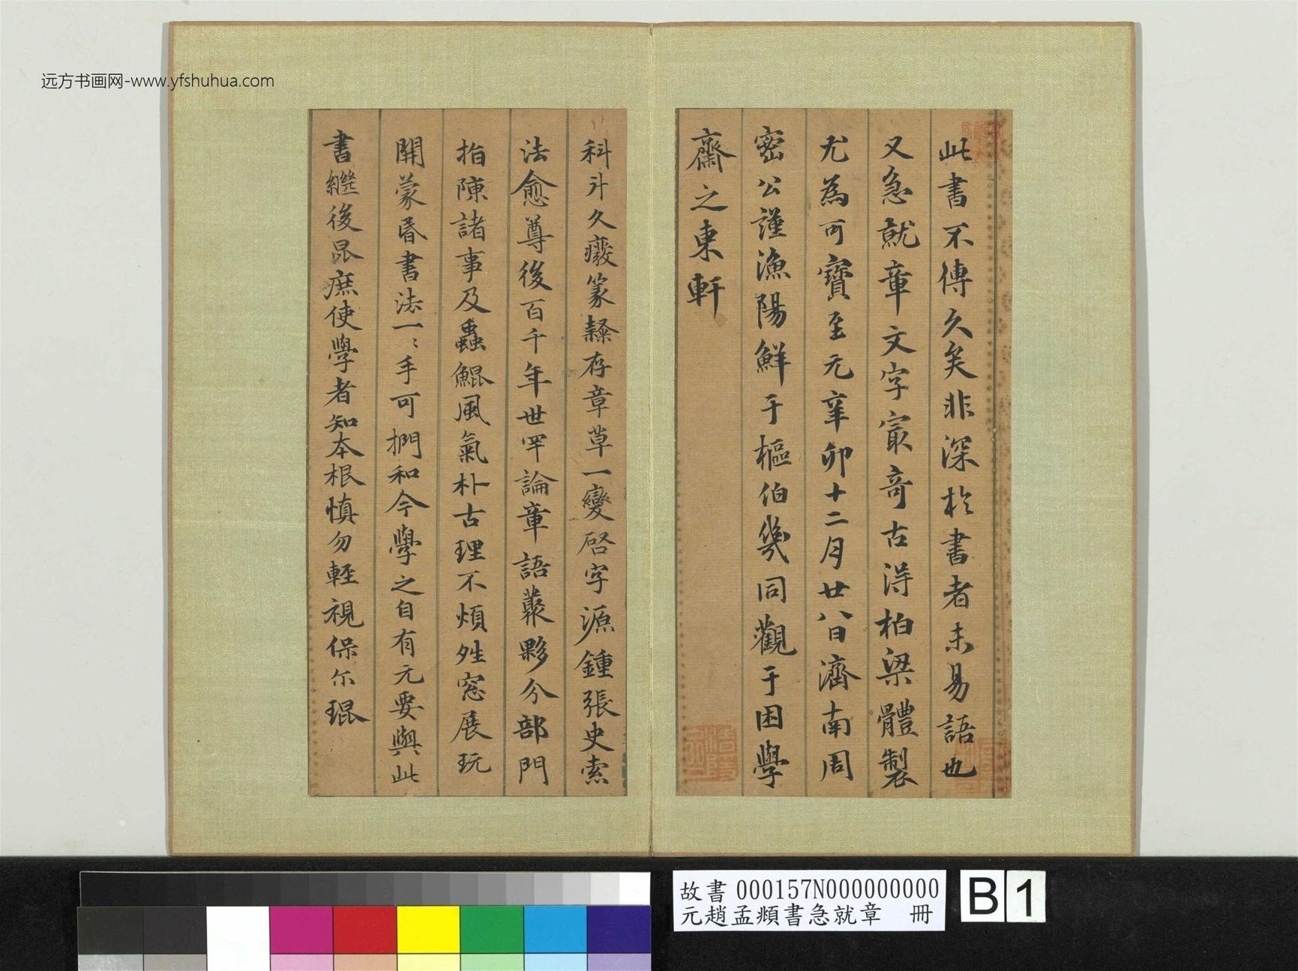 远方书画网-www.yfshuhua.com
此書不傳久矣非深於書者未易語也
又急就章文字㝡奇古得柏梁體製
尤為可寶至元辛卯十二月廿八日濟南周
密公謹漁陽鮮于樞伯幾同觀于困學
齋之東軒
科斗久癈篆𨽻存章草一變啓字源鍾張史索
法愈尊後百千年世罕論章語叢夥分部門
指陳諸事及蟲鯤風氣朴古理不煩姓窓展玩
開蒙昏書法一〻手可捫和今學之自有元要與此
書繼後昆庶使學者知本根慎勿輕視保尓琨
故書 000157N000000000
元趙孟頫書急就章 冊
B 1